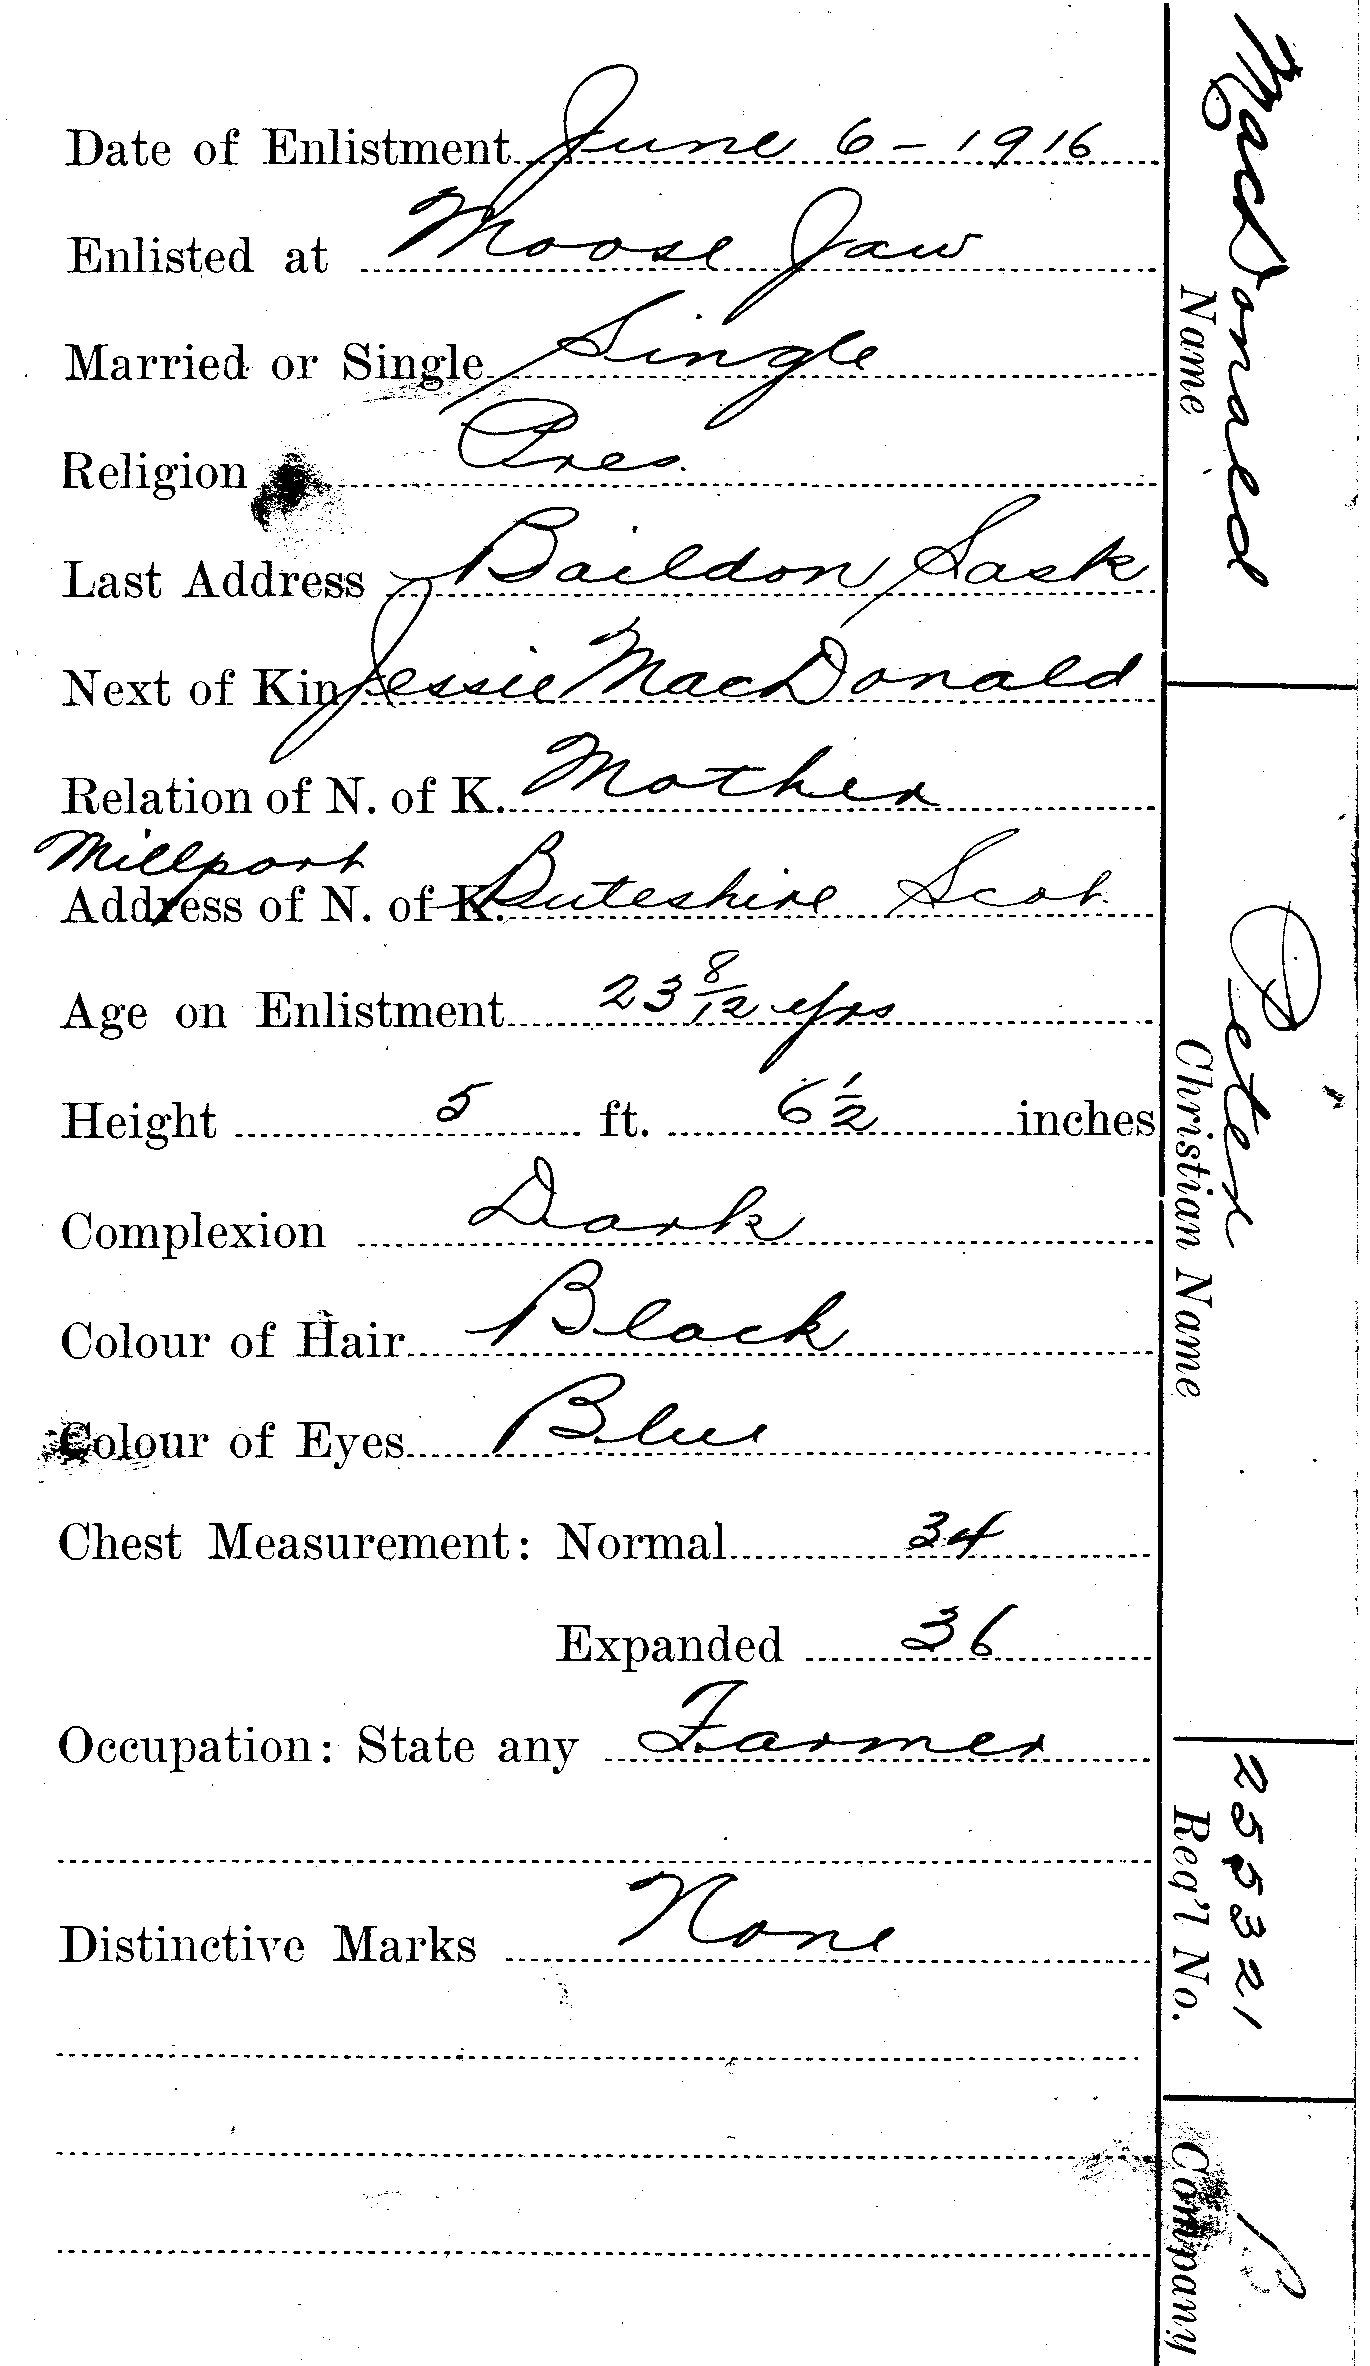 Date of Enlistment June 6 - 1916
Enlisted at Moose Jaw
Married or Single Single
Religion Pres.
Last Address Baildon Sask
Next of Kin Jessie MacDonald
Relation of N. of K. Mother
Millport
Address of N. of K. Buteshire Scot.
Age on Enlistment 23 8/12 yrs
Height 5 ft. 6 1/2 inches
Complexion Dark
Colour of Hair Black
Colour of Eyes Blue
Chest Measurement: Normal 34
Expanded 36
Occupation: State any Farmer
Distinctive Marks None
MacDonald
Name
Peter
Christian Name
255321
Reg'l No.
B
Company